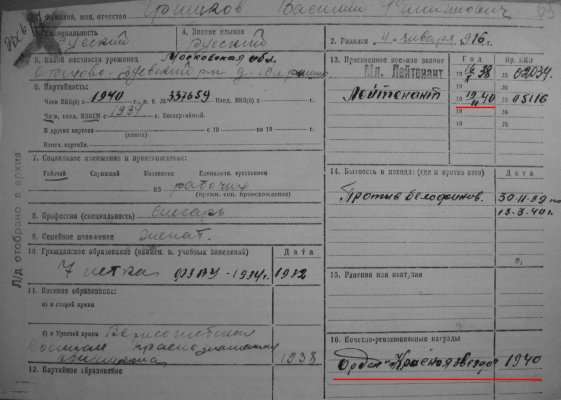 Фамилия, имя, отчество Гришков Василий Филиппович
3. Национальность 4. Знание языков 2. Родился "11" января 1916 г.
русский русский
5. Какой местности уроженец Московская обл.
13. Присвоенное военное звание Год Пр. НКО
Мл. Лейтенант 38 № 02034
Лейтенант 40 № 05116
6. Партийность:
Член ВКП(б) с 1940 п. б. № 337659 Канд. ВКП(б) с
Член, канд. ВЛКСМ с 1934 г. Беспартийный.
В других партиях с 19 по 19 г.
(каких)
7. Социальное положение и происхождение:
Рабочий Служащий Колхозник Единоличн. крестьянин
из рабочих
(прежн. соц. происхождение)
8. Профессия (специальность) слесарь
9. Семейное положение женат.
10. Гражданское образование (наимен. в. учебных заведений) Дата
7 леткa ФЗУ-1934г. 1932
11. Военное образование:
а) в старой армии
б) в Красной армии
1938
12. Партийное образование
14. Бытность в походах (где и против кого) Дата
Против белофиннов. 30-11-39 по
13-3-40 г.
15. Ранения или контузии
16. Почетно-революционные награды
Орден "Красная звезда" 1940
Л/д отобрано в архив